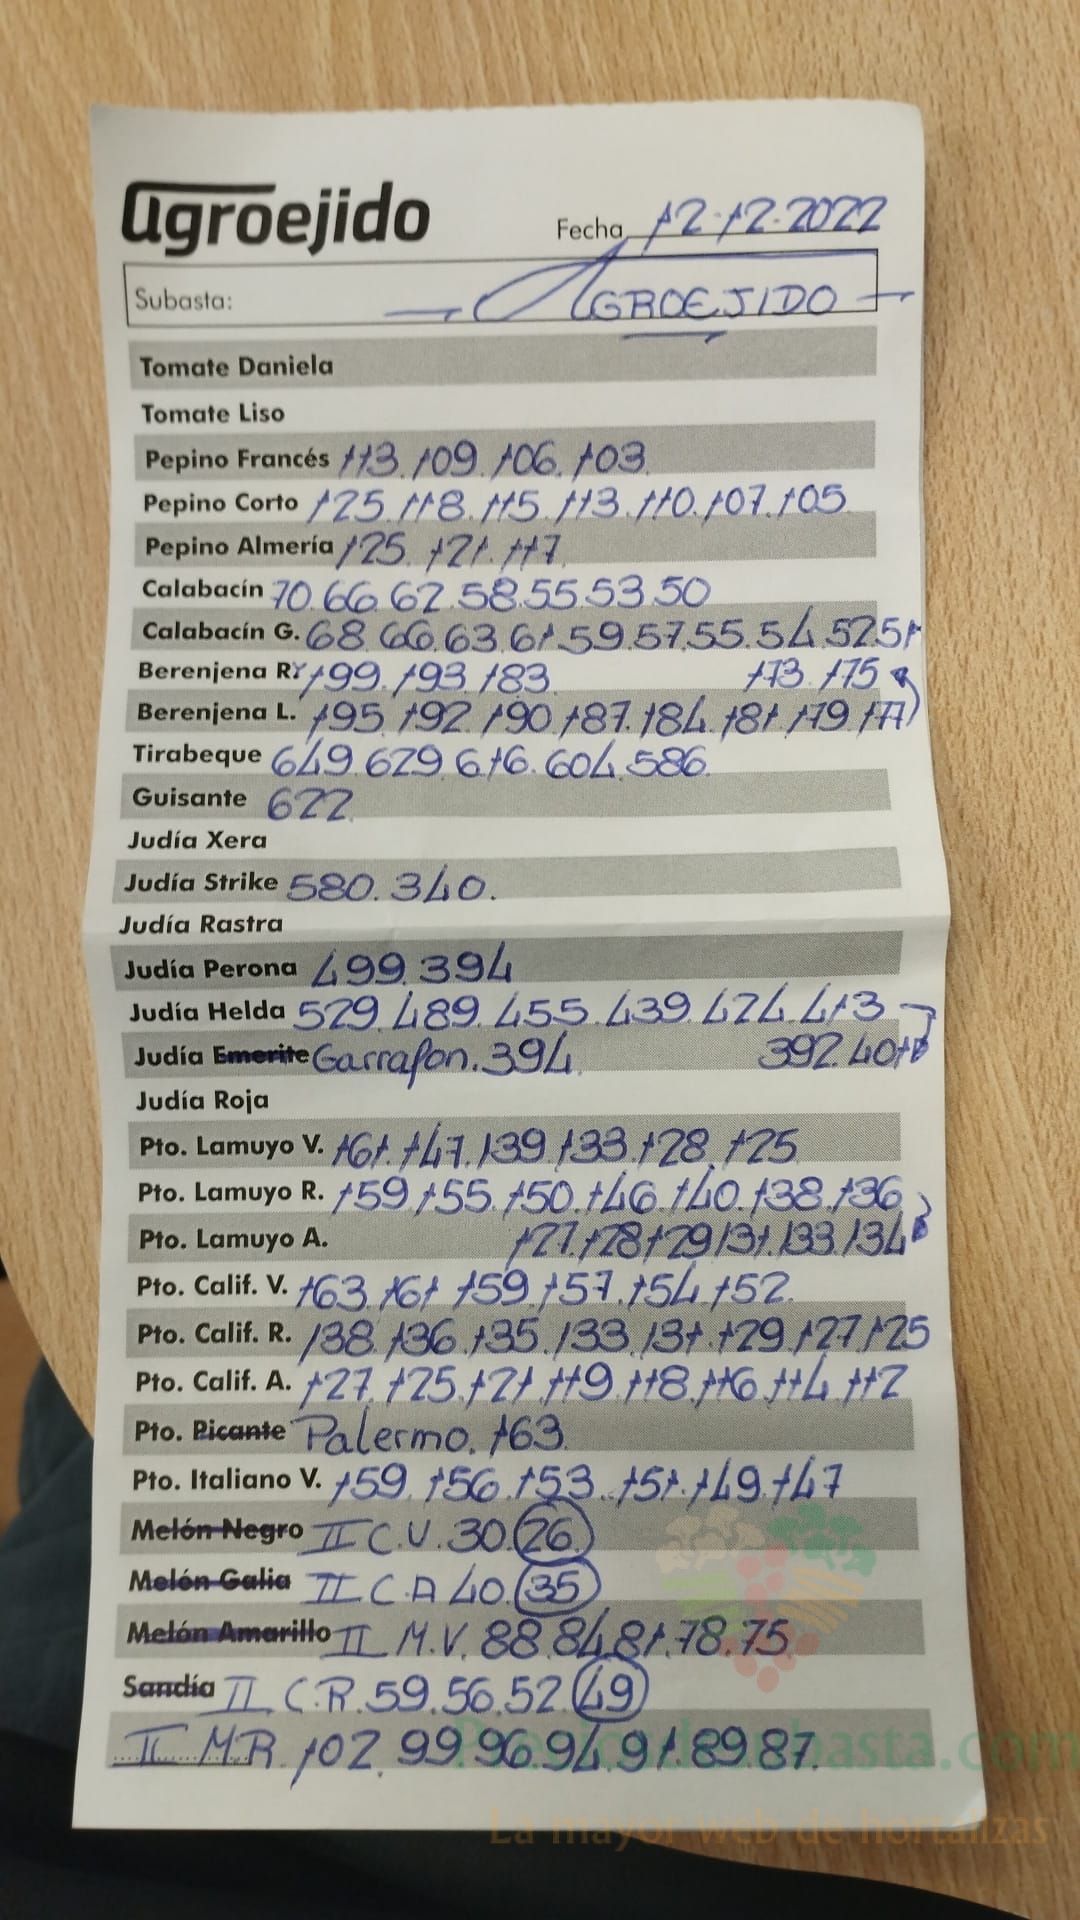 agroejido
Fecha 12-12-2022
Subasta: AGROEJIDO
Tomate Daniela
Tomate Liso
Pepino Francés 113. 109. 106. 103
Pepino Corto 125. 118. 115. 113. 110. 107. 105
Pepino Almería 125. 121. 117
Calabacín 70. 66. 62. 58. 55. 53. 50
Calabacín G. 68. 66. 63. 61. 59. 57. 55. 54. 52. 51
Berenjena R 199. 193. 183. 173. 175
Berenjena L. 195. 192. 190. 187. 184. 181. 179. 177
Tirabeque 649. 629. 616. 604. 586.
Guisante 622
Judía Xera
Judía Strike 580. 340.
Judía Rastra
Judía Perona 499. 394
Judía Helda 529. 489. 455. 439. 424. 413
Judía Emerite Garrafon. 394. 392. 401
Judía Roja
Pto. Lamuyo V. 161. 147. 139. 133. 128. 125
Pto. Lamuyo R. 159. 155. 150. 146. 140. 138. 136
Pto. Lamuyo A. 127. 128. 129. 131. 133. 134
Pto. Calif. V. 163. 161. 159. 157. 154. 152.
Pto. Calif. R. 138. 136. 135. 133. 131. 129. 127. 125
Pto. Calif. A. 127. 125. 121. 119. 118. 116. 114. 112
Pto. Picante Palermo. 163.
Pto. Italiano V. 159. 156. 153. 151. 149. 147
Melón Negro II C.V. 30. 26.
Melón Galia II C.A 40. 35
Melón Amarillo II M.V. 88. 84. 81. 78. 75
Sandía II C.R. 59. 56. 52. 49
II M.R. 102. 99. 96. 94. 91. 89. 87.
La mayor web de hortalizas